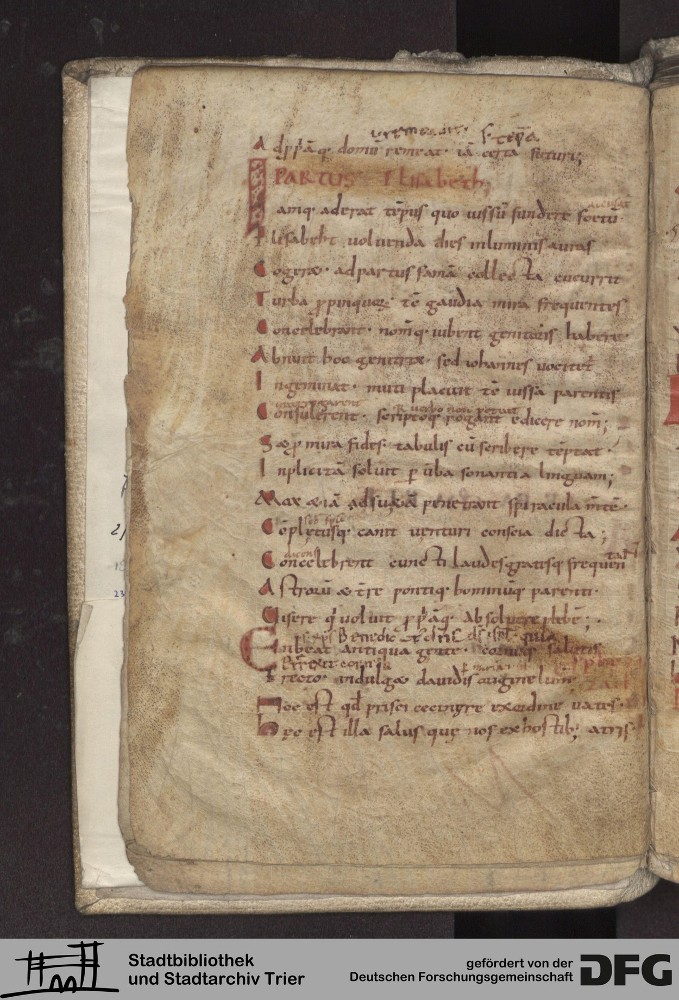 Ad ppāq· domū remeat· iā certa futuris;
PARTUS Elisabeth;
Iamq· aderat tēpus quo iussū fundere foetū·
Elisabeht· voluenda dies inluminis auras
Cogeret· adpartus famā collecta cucurrit
Turba ppinquoꝝ· tē gaudia mira frequentes
Concelebrant· nomq· iubent genitoris habere·
Abnuit hoc genitrix· sed iohannes uocitet
Ingeminat· muti placuit tē iussa parentis
Consulerent· scriptoq; rogant edicere nom̄;
Saep mira fides· tabulis cū scribere tēptat·
Inplicitā soluit p ūba sonantia linguam;
Mox & iā adsuetā penetrant spiracula m̄tē·
Cōpletusq· canit uenturi conscia dicta;
Concelebrent cuncti laudes gratesq frequen
tant
Astroꝝ & tr̄e pontiq· hominūq parenti·
Uisere q uoluit ppāq· absoluere plebē;
p̄xp̄i Benedic
En beat antiqua gente· cornuq· salutis
Erexit cornu
Erecto· indulget dauidis origine lum̄
Hoc est qd prisci cecinere exordine uates·
Haec est illa salus quę nos exhostib; atris·
Stadtbibliothek
und Stadtarchiv Trier
gefördert von der
Deutschen Forschungsgemeinschaft
DFG